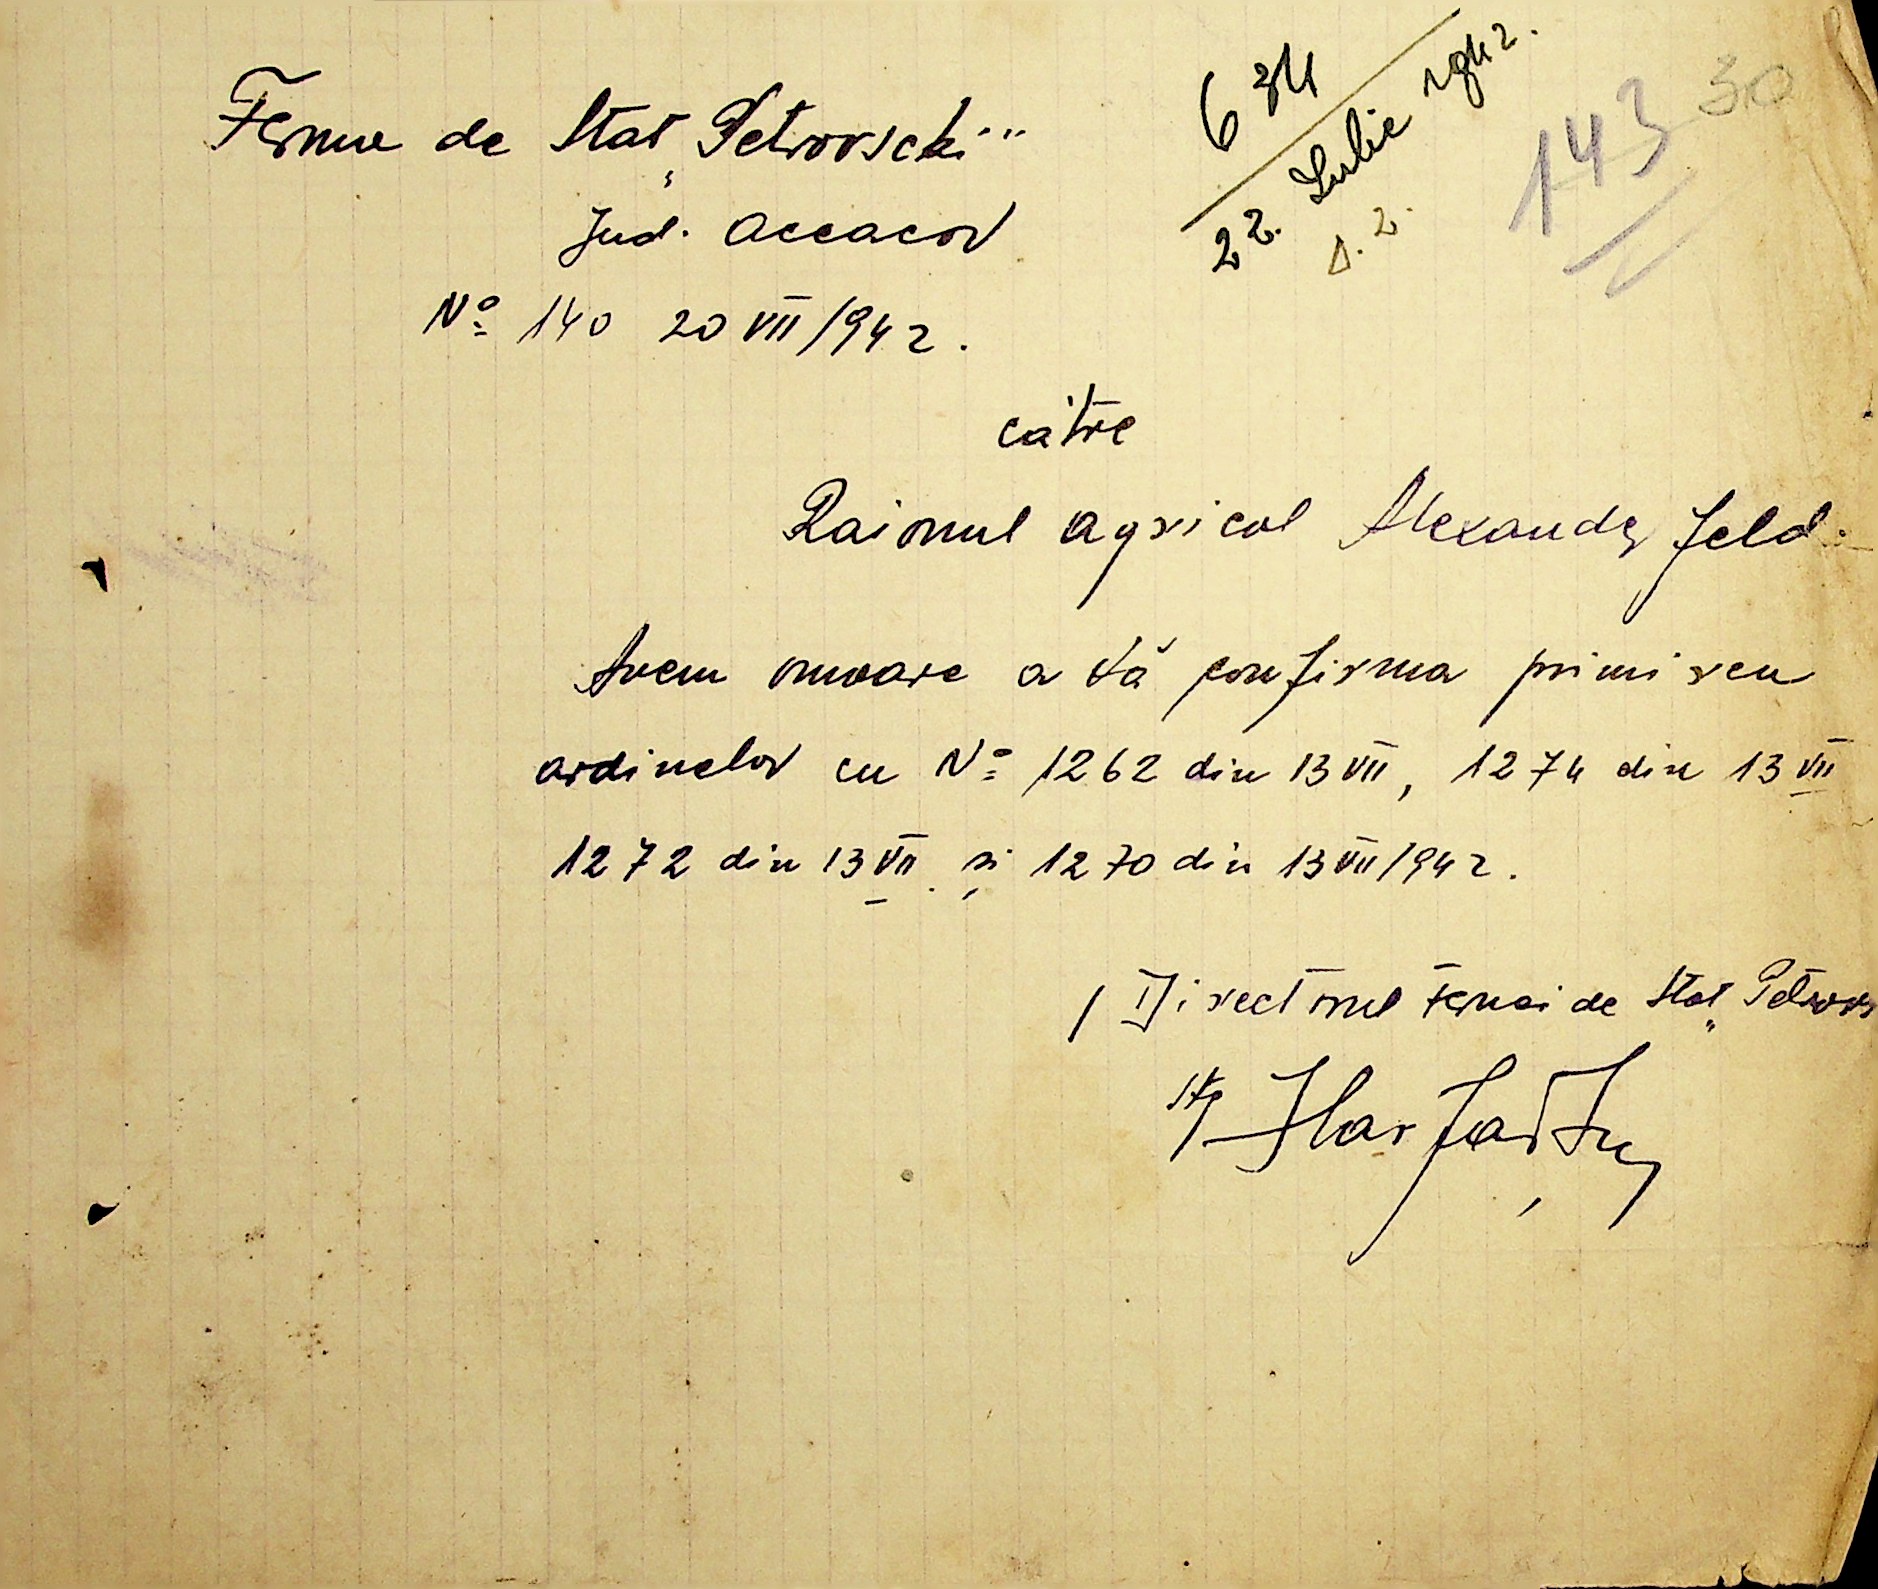 Ferma de Stat „Petrovscki"
Jud. Oceacov
No 140 20 VII/942.
634
22. Iulie 1942.
143
30
către
Raionul agricol Alexanderfeld.
Avem onoare a Vă confirma primirea
ordinelor cu No 1262 din 13 VII, 1274 din 13 VII
1272 din 13 VII. și 1270 din 13 VII/942.
/ Directorul Fermei de Stat „Petrovs